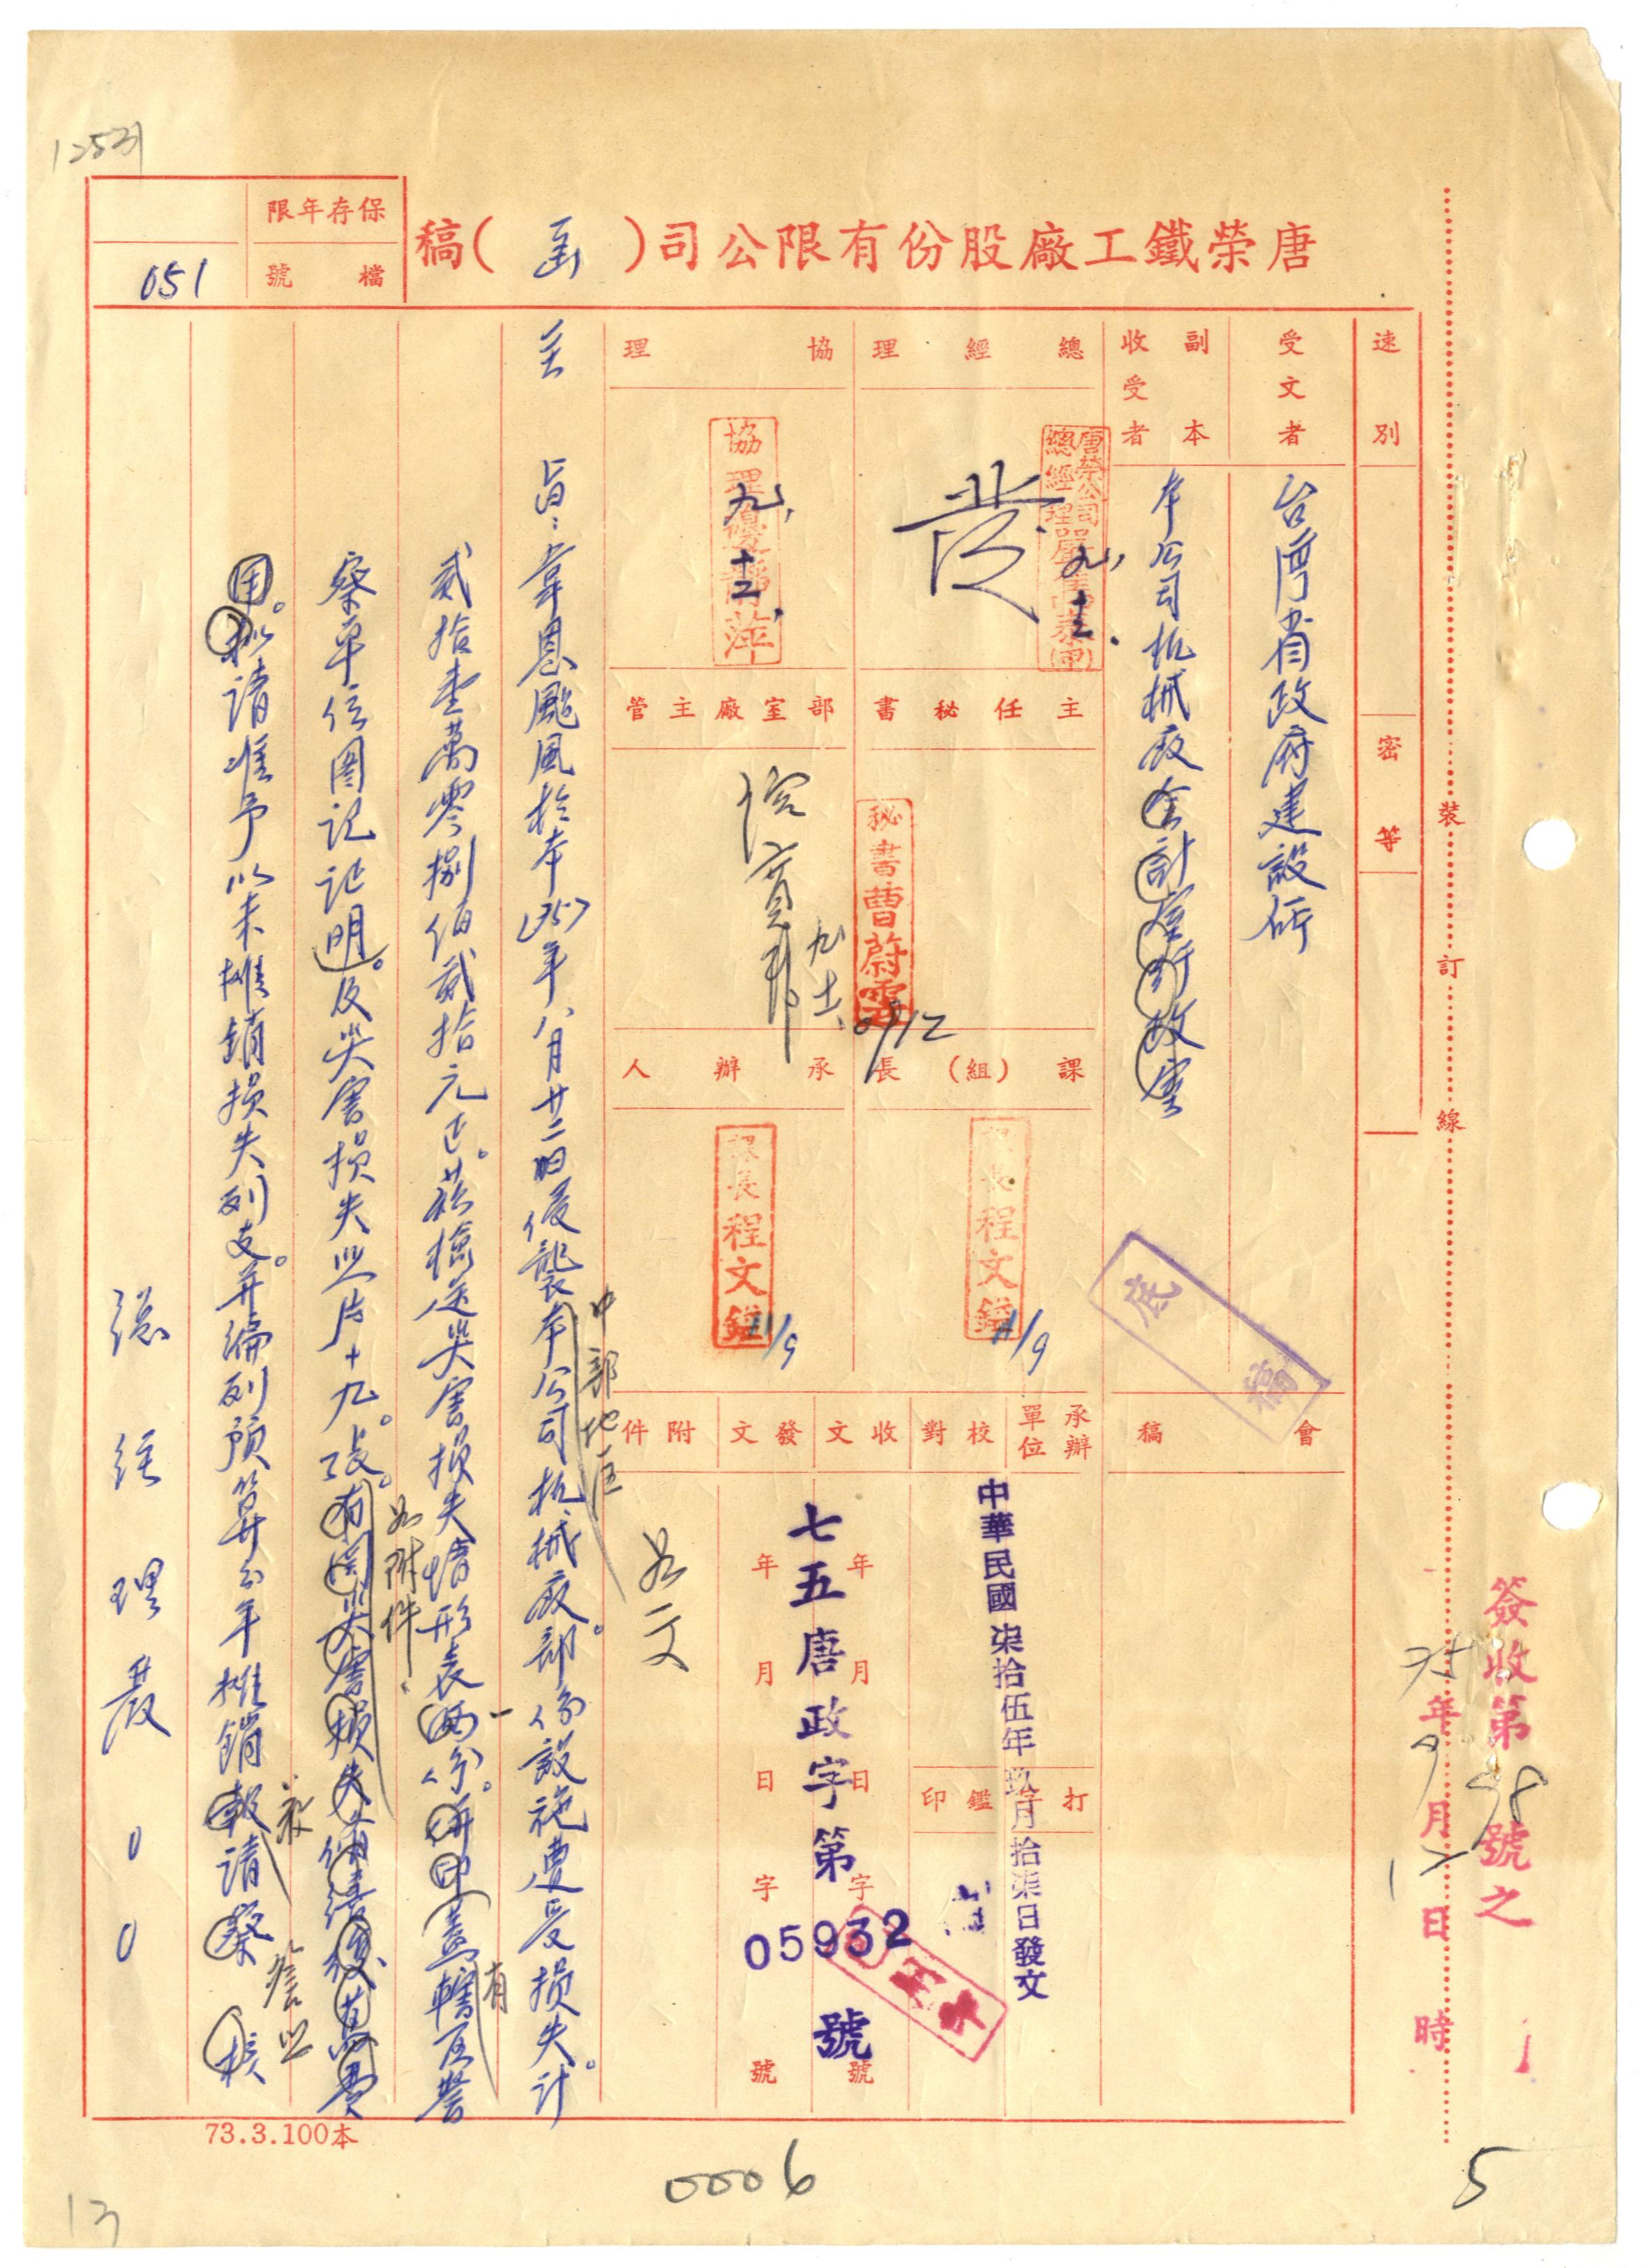 12531
唐榮鐵工廠股份有限公司(函)稿
保存年限
檔號
051
速別
密等
受文者
台灣省政府建設廳
副本
收受者
本公司机械廠會計室行政室
總經理
唐榮公司
總經理
發
九、十二.
協理
協理
九、十二、
主任秘書
秘書曹蔚雲
9/12
部室廠主管
九、十二、
課(組)長
課長程文鎰
11/9
承辦人
課長程文鎰
11/9
底稿
會稿
承辦單位
校對
收文
發文
附件
中華民國柒拾伍年玖月拾柒日發文
打字
鑑印
年月日字號
年月日字號
七五唐政字第05932號
如文
主旨:韋恩颱風於本(75)年八月廿二日侵襲本公司机械廠。部份設施遭受損失。計
中部地區
貳拾壹萬零捌佰貳拾元正。茲檢送災害損失情形表兩份。併印蓋轄區警
一
有
如附件.
察單位圖記証明。及災害損失照片十九。張。有關災害損失
用。擬請准予以未攤銷損失列支。并編列預算分年攤銷報請 察 核
總經理嚴○○
裝
訂
線
簽收第98號之1
75年9月17日 時
73.3.100本
0006
5
13